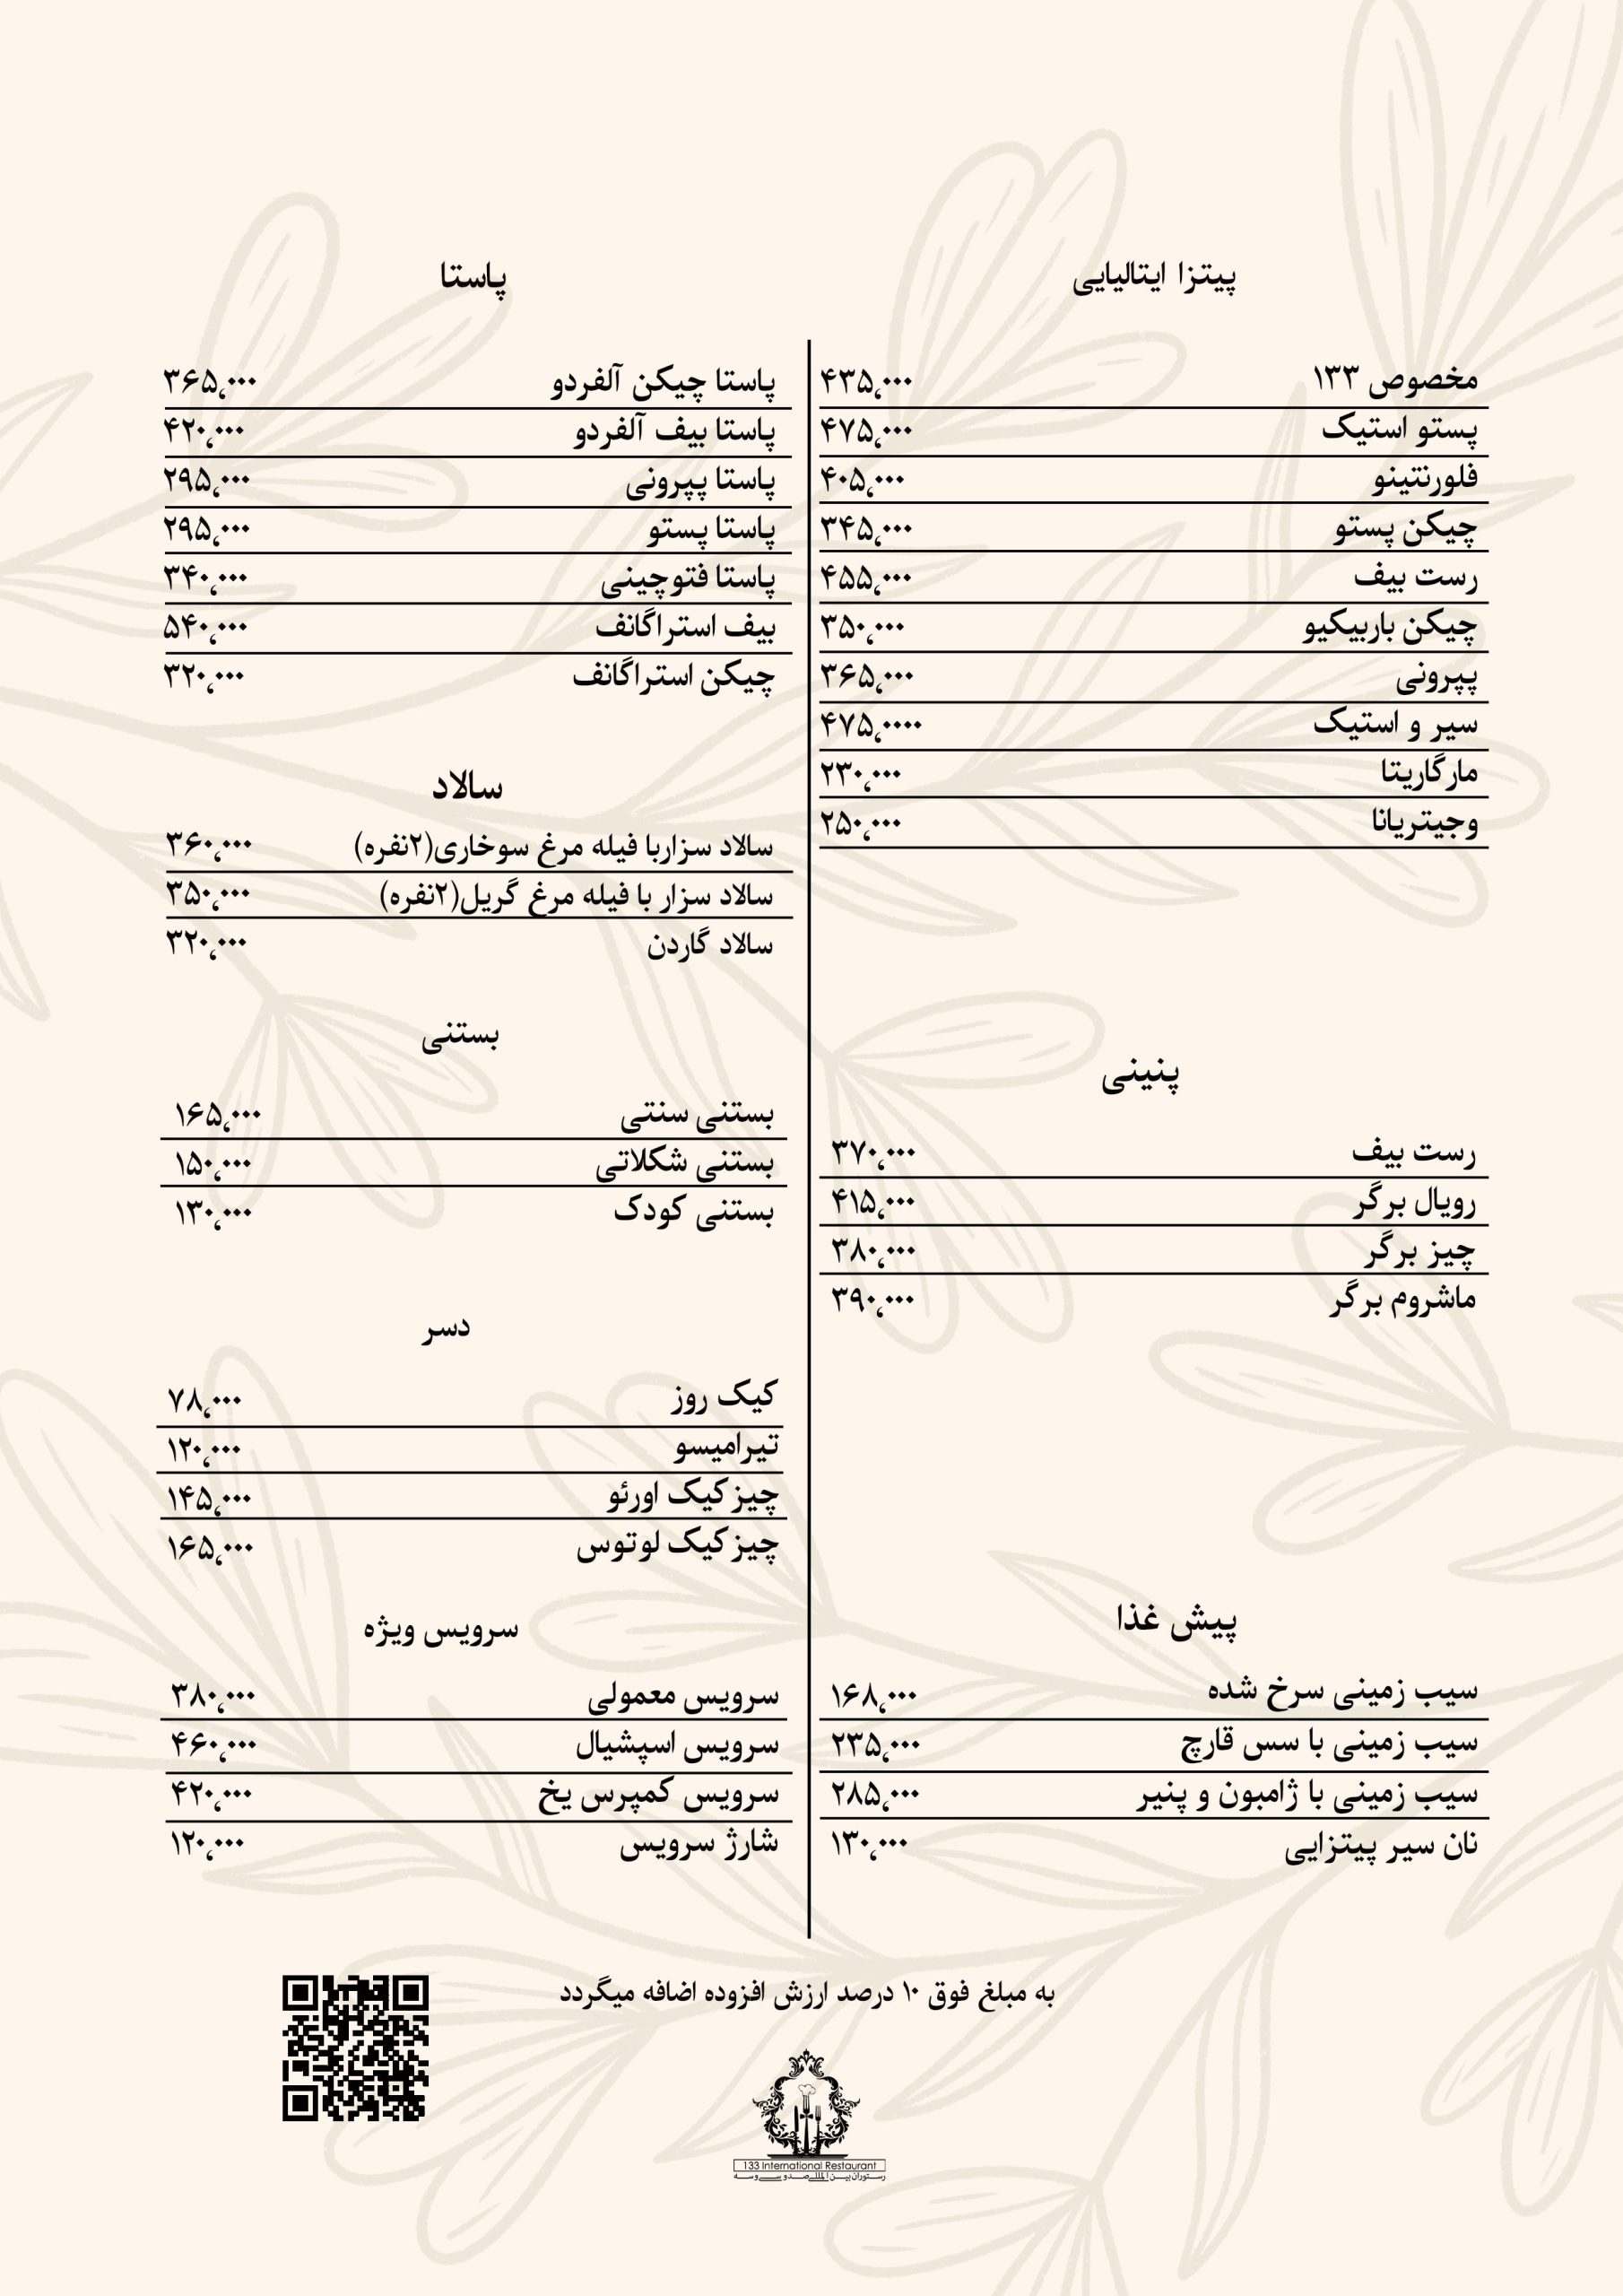 پیتزا ایتالیایی
مخصوص ۱۳۳ ۴۳۵،۰۰۰
پستو استیک ۴۷۵،۰۰۰
فلورنتینو ۴۰۵،۰۰۰
چیکن پستو ۳۴۵،۰۰۰
رست بیف ۴۵۵،۰۰۰
چیکن باربیکیو ۳۵۰،۰۰۰
پپرونی ۳۶۵،۰۰۰
سیر و استیک ۴۷۵،۰۰۰۰
مارگاریتا ۲۳۰،۰۰۰
وجیتریانا ۲۵۰،۰۰۰
پنینی
رست بیف ۳۷۰،۰۰۰
رویال برگر ۴۱۵،۰۰۰
چیز برگر ۳۸۰،۰۰۰
ماشروم برگر ۳۹۰،۰۰۰
پیش غذا
سیب زمینی سرخ شده ۱۶۸،۰۰۰
سیب زمینی با سس قارچ ۲۳۵،۰۰۰
سیب زمینی با ژامبون و پنیر ۲۸۵،۰۰۰
نان سیر پیتزایی ۱۳۰،۰۰۰
پاستا
پاستا چیکن آلفردو ۳۶۵،۰۰۰
پاستا بیف آلفردو ۴۲۰،۰۰۰
پاستا پپرونی ۲۹۵،۰۰۰
پاستا پستو ۲۹۵،۰۰۰
پاستا فتوچینی ۳۴۰،۰۰۰
بیف استراگانف ۵۴۰،۰۰۰
چیکن استراگانف ۳۲۰،۰۰۰
سالاد
سالاد سزاربا فیله مرغ سوخاری(۲نفره) ۳۶۰،۰۰۰
سالاد سزار با فیله مرغ گریل(۲نفره) ۳۵۰،۰۰۰
سالاد گاردن ۳۲۰،۰۰۰
بستنی
بستنی سنتی ۱۶۵،۰۰۰
بستنی شکلاتی ۱۵۰،۰۰۰
بستنی کودک ۱۳۰،۰۰۰
دسر
کیک روز ۷۸،۰۰۰
تیرامیسو ۱۲۰،۰۰۰
چیزکیک اورئو ۱۴۵،۰۰۰
چیزکیک لوتوس ۱۶۵،۰۰۰
سرویس ویژه
سرویس معمولی ۳۸۰،۰۰۰
سرویس اسپشیال ۴۶۰،۰۰۰
سرویس کمپرس یخ ۴۲۰،۰۰۰
شارژ سرویس ۱۲۰،۰۰۰
به مبلغ فوق ۱۰ درصد ارزش افزوده اضافه میگردد
133 International Restaurant
رستوران بین المللی صد و سی و سه